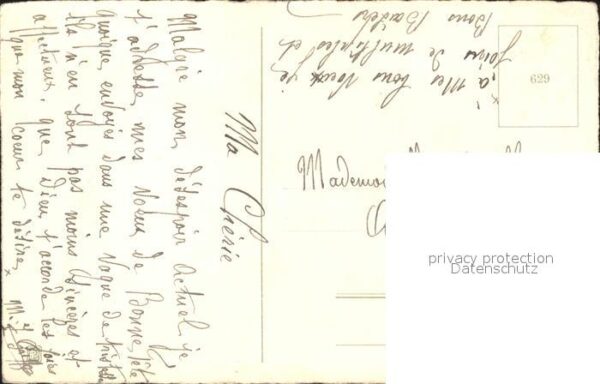 Ma Chérie
Malgré mon désespoir actuel je
t'adresse mes Voeux de Bonne fête
quoique envoyés dans une Vague de tristesse
ils n'en sont pas moins sincères et
affectueux, que Dieu t'accorde les joies
que mon coeur te désire,
à Mes bons Voeux je
joins de multiples et
Bons Baisers
629
Mademoi
privacy protection
Datenschutz